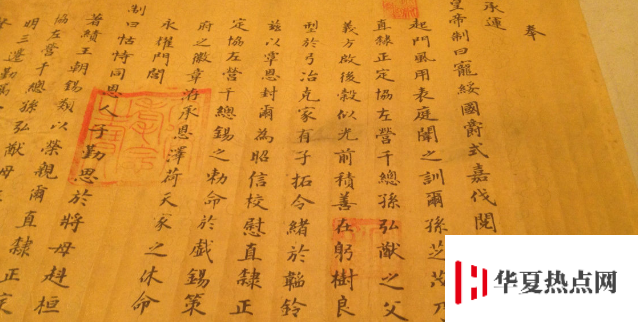 奉
承運
皇帝制曰寵綏國爵式嘉伐閱
起門風用表庭闈之訓爾孫芝
直隸正定協左營千總孫弘猷之父
義方啟後穀似光前積善在躬樹良
型於弓冶克家有子拓令緒於韜鈐
茲以覃恩封爾為昭信校慰直隸正
定協左營千總錫之勅命於戲錫策
府之徽章洊承恩澤荷天家之休命
永耀門閭
制曰怙恃同恩人子勤思於將母赳桓
著績王朝錫類以榮親爾直隸正定
協左營千總孫弘猷母
明三遷勤
华夏热点网